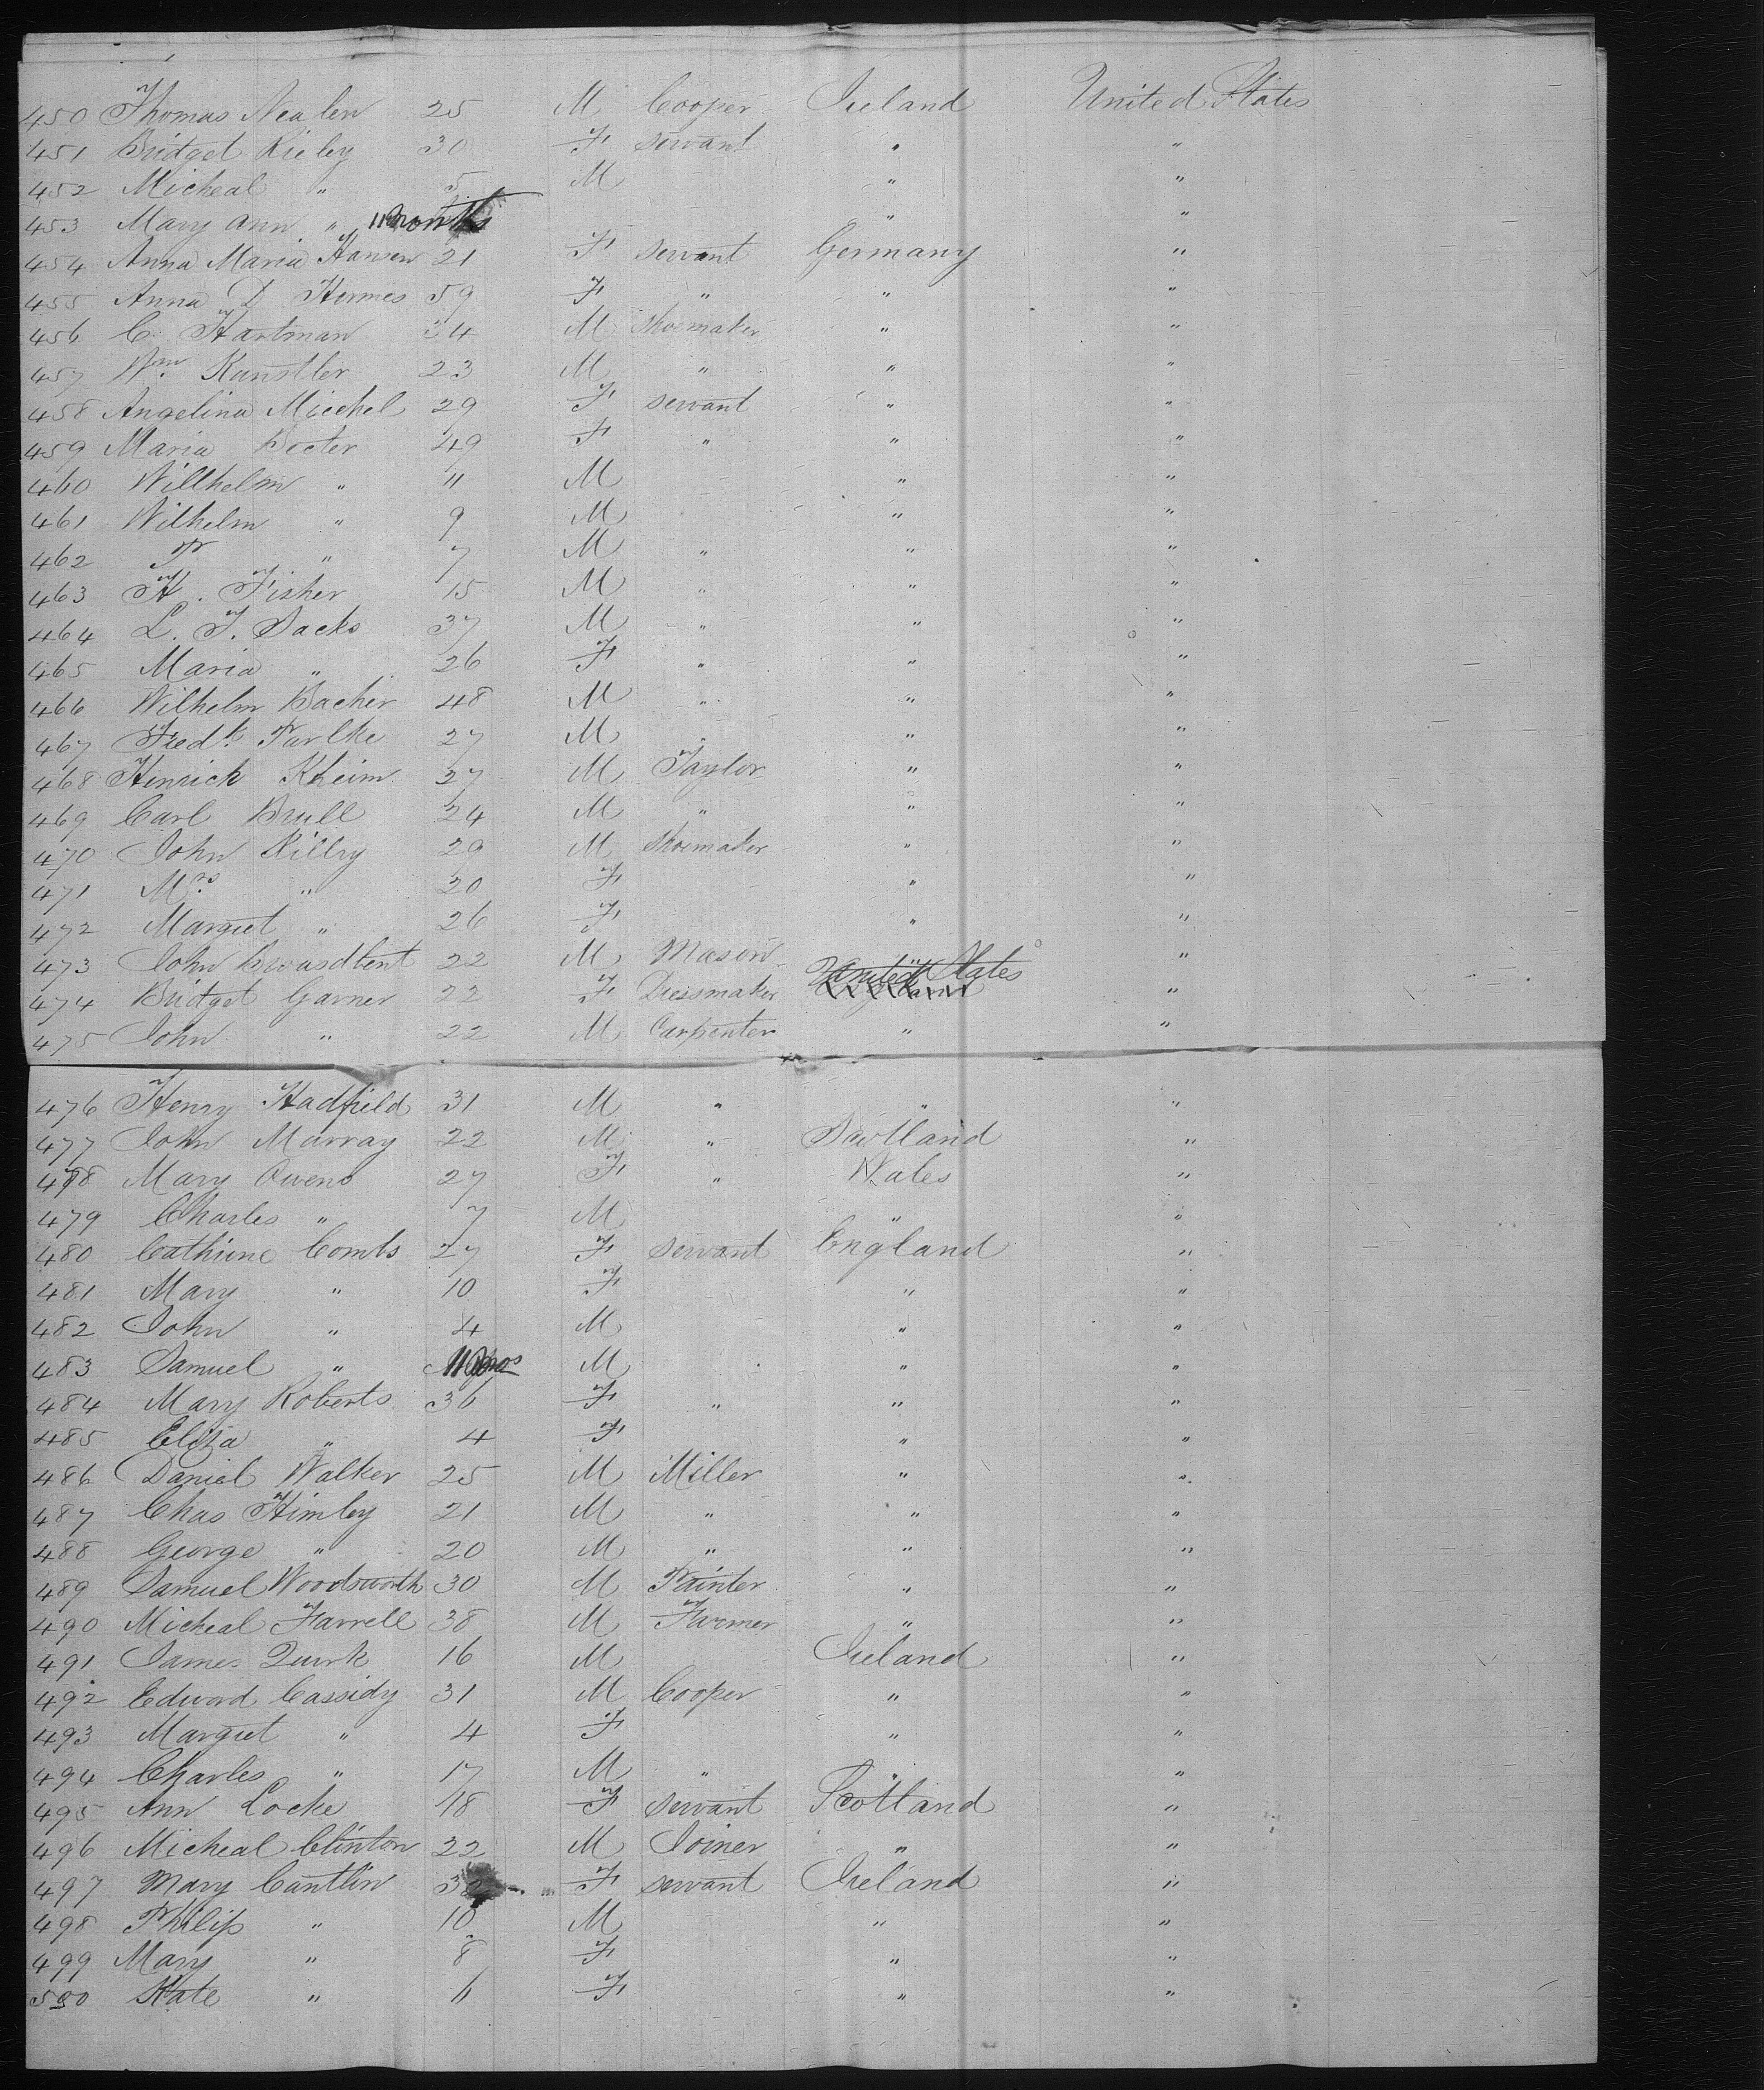 450 Thomas Nealen 25 M Cooper Ireland United States
451 Bridget Rieley 30 F servant " "
452 Micheal " 5 M " "
453 Mary Ann " 11 months " "
454 Anna Maria Hansen 21 F servant Germany "
455 Anna D Hermes 59 F " " "
456 C. Hartman 34 M Shoemaker " "
457 Wm Kunstler 23 M " " "
458 Angelina Miechel 29 F servant " "
459 Maria Bocter 49 F " " "
460 Willhelm " 11 M " "
461 Wilhelm " 9 M " "
462 P " 7 M " " "
463 H. Fisher 15 M " " "
464 L. F. Sacks 37 M " " "
465 Maria " 26 F " " "
466 Wilhelm Bacher 48 M " " "
467 Fredk Parlke 27 M " " "
468 Henrick Kheim 27 M Taylor " "
469 Carl Brull 24 M " " "
470 John Killry 29 M Shoemaker " "
471 Mrs " 20 F " "
472 Margret " 26 F " "
473 John Broasdbent 22 M Mason " "
474 Bridget Garner 22 F Dressmaker United States "
475 John " 22 M Carpenter " "
476 Henry Hadfield 31 M " " "
477 John Murray 22 M " Scotland "
478 Mary Owens 27 F " Wales "
479 Charles " 7 M " "
480 Cathrine Combs 27 F servant England "
481 Mary " 10 F " "
482 John " 4 M " "
483 Samuel " 11 mos M " "
484 Mary Roberts 36 F " " "
485 Eliza " 4 F " "
486 Daniel Walker 25 M Miller " "
487 Chas Himley 21 M " " "
488 George " 20 M " " "
489 Samuel Woodsworth 30 M Painter " "
490 Micheal Farrell 38 M Farmer " "
491 James Quirk 16 M Ireland "
492 Edward Cassidy 31 M Cooper " "
493 Margret " 4 F " "
494 Charles " 17 M " " "
495 Ann Locke 18 F servant Scotland "
496 Micheal Clinton 22 M Joiner " "
497 Mary Cantlin 32 F servant Ireland "
498 Philip " 10 M " "
499 Mary " 8 F " "
500 Kate " 6 F " "